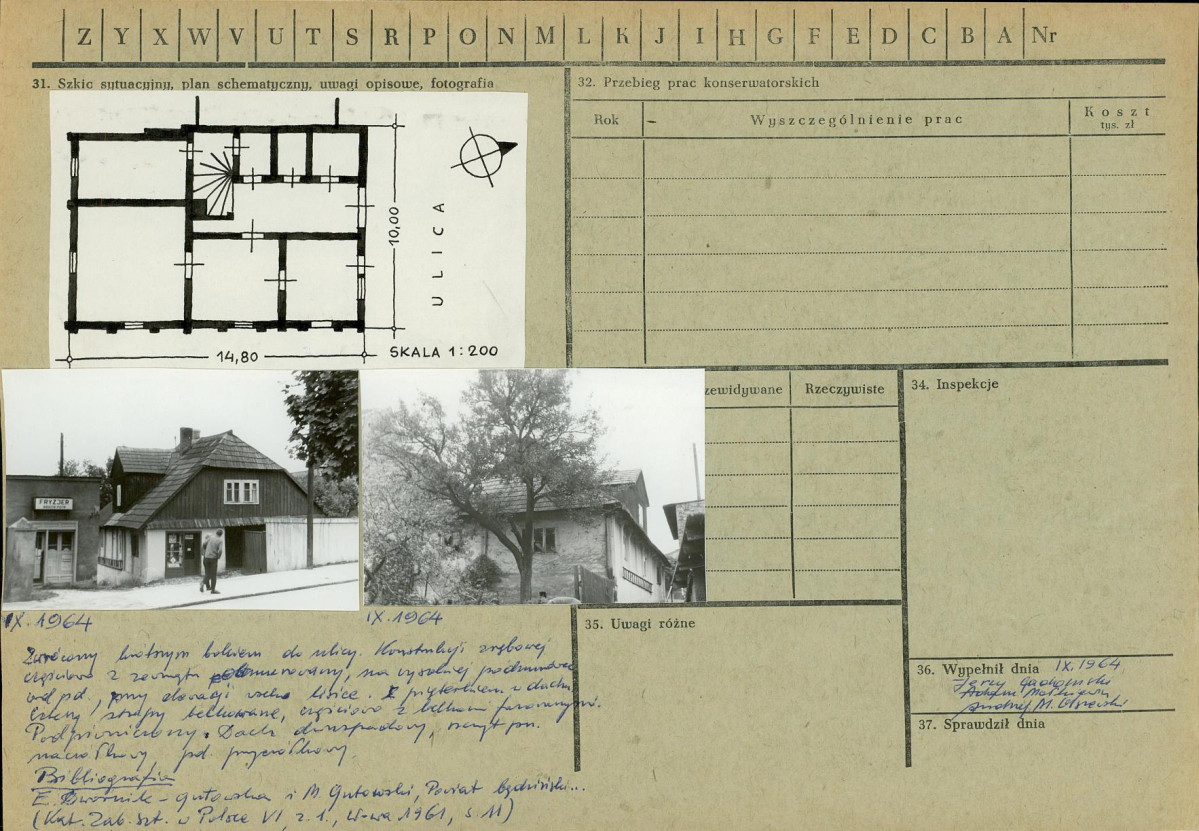 Z Y X W V U T S R P O N M L K J I H G F E D C B A Nr
31. Szkic sytuacyjny, plan schematyczny, uwagi opisowe, fotografia
10,00
ULICA
14,80
SKALA 1:200
32. Przebieg prac konserwatorskich
Rok
Wyszczególnienie prac
Koszt
tys. zł
zewidywane
Rzeczywiste
34. Inspekcje
FRYZJER
IX.1964
IX.1964
Zwrócony krótszym bokiem do ulicy. Konstrukcji zrębowej
częściowo z zewnątrz obmurowany, na wysokiej podmurówce
od pd, przy elewacji
stropy belkowane, częściowo z belkami fazowanymi.
Podpiwniczony. Dach dwuspadowy, szczyt pn.
naczółkowy pd. przyczółkowy.
Bibliografia
E. Dwornik-Gutowska i M. Gutowski, Powiat będziński...
(Kat. Zab. Szt. w Polsce VI, z. 1., W-wa 1961, s. 11)
35. Uwagi różne
36. Wypełnił dnia IX.1964,
Jerzy
Andrzej M. Olszewski
37. Sprawdził dnia